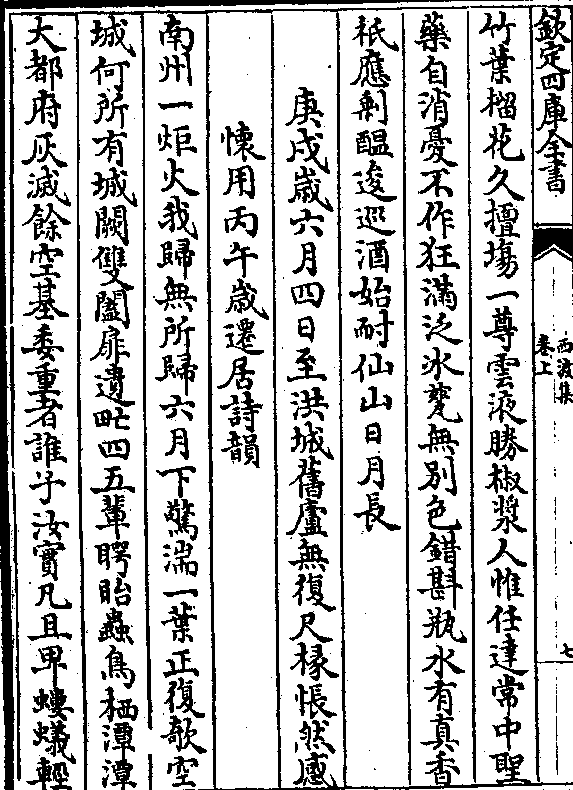 欽定四庫全書
西渡集
卷上
七
竹葉榴花久擅塲一尊雲液勝椒漿人惟任達常中聖
藥自消憂不作狂滿泛冰甆無別色錯斟瓶水有真香
祇應剩醖逡巡酒始耐仙山日月長
庚戌嵗六月四日至洪城舊廬無復尺椽悵然感
懷用丙午嵗遷居詩韻
南州一炬火我歸無所歸六月下驚湍一葉正復欹空
城何所有城闕雙闔扉遺甿四五輩睜眙蟲鳥栖潭潭
大都府灰滅餘空基委重者誰子汝實凡且卑螻蟻輕